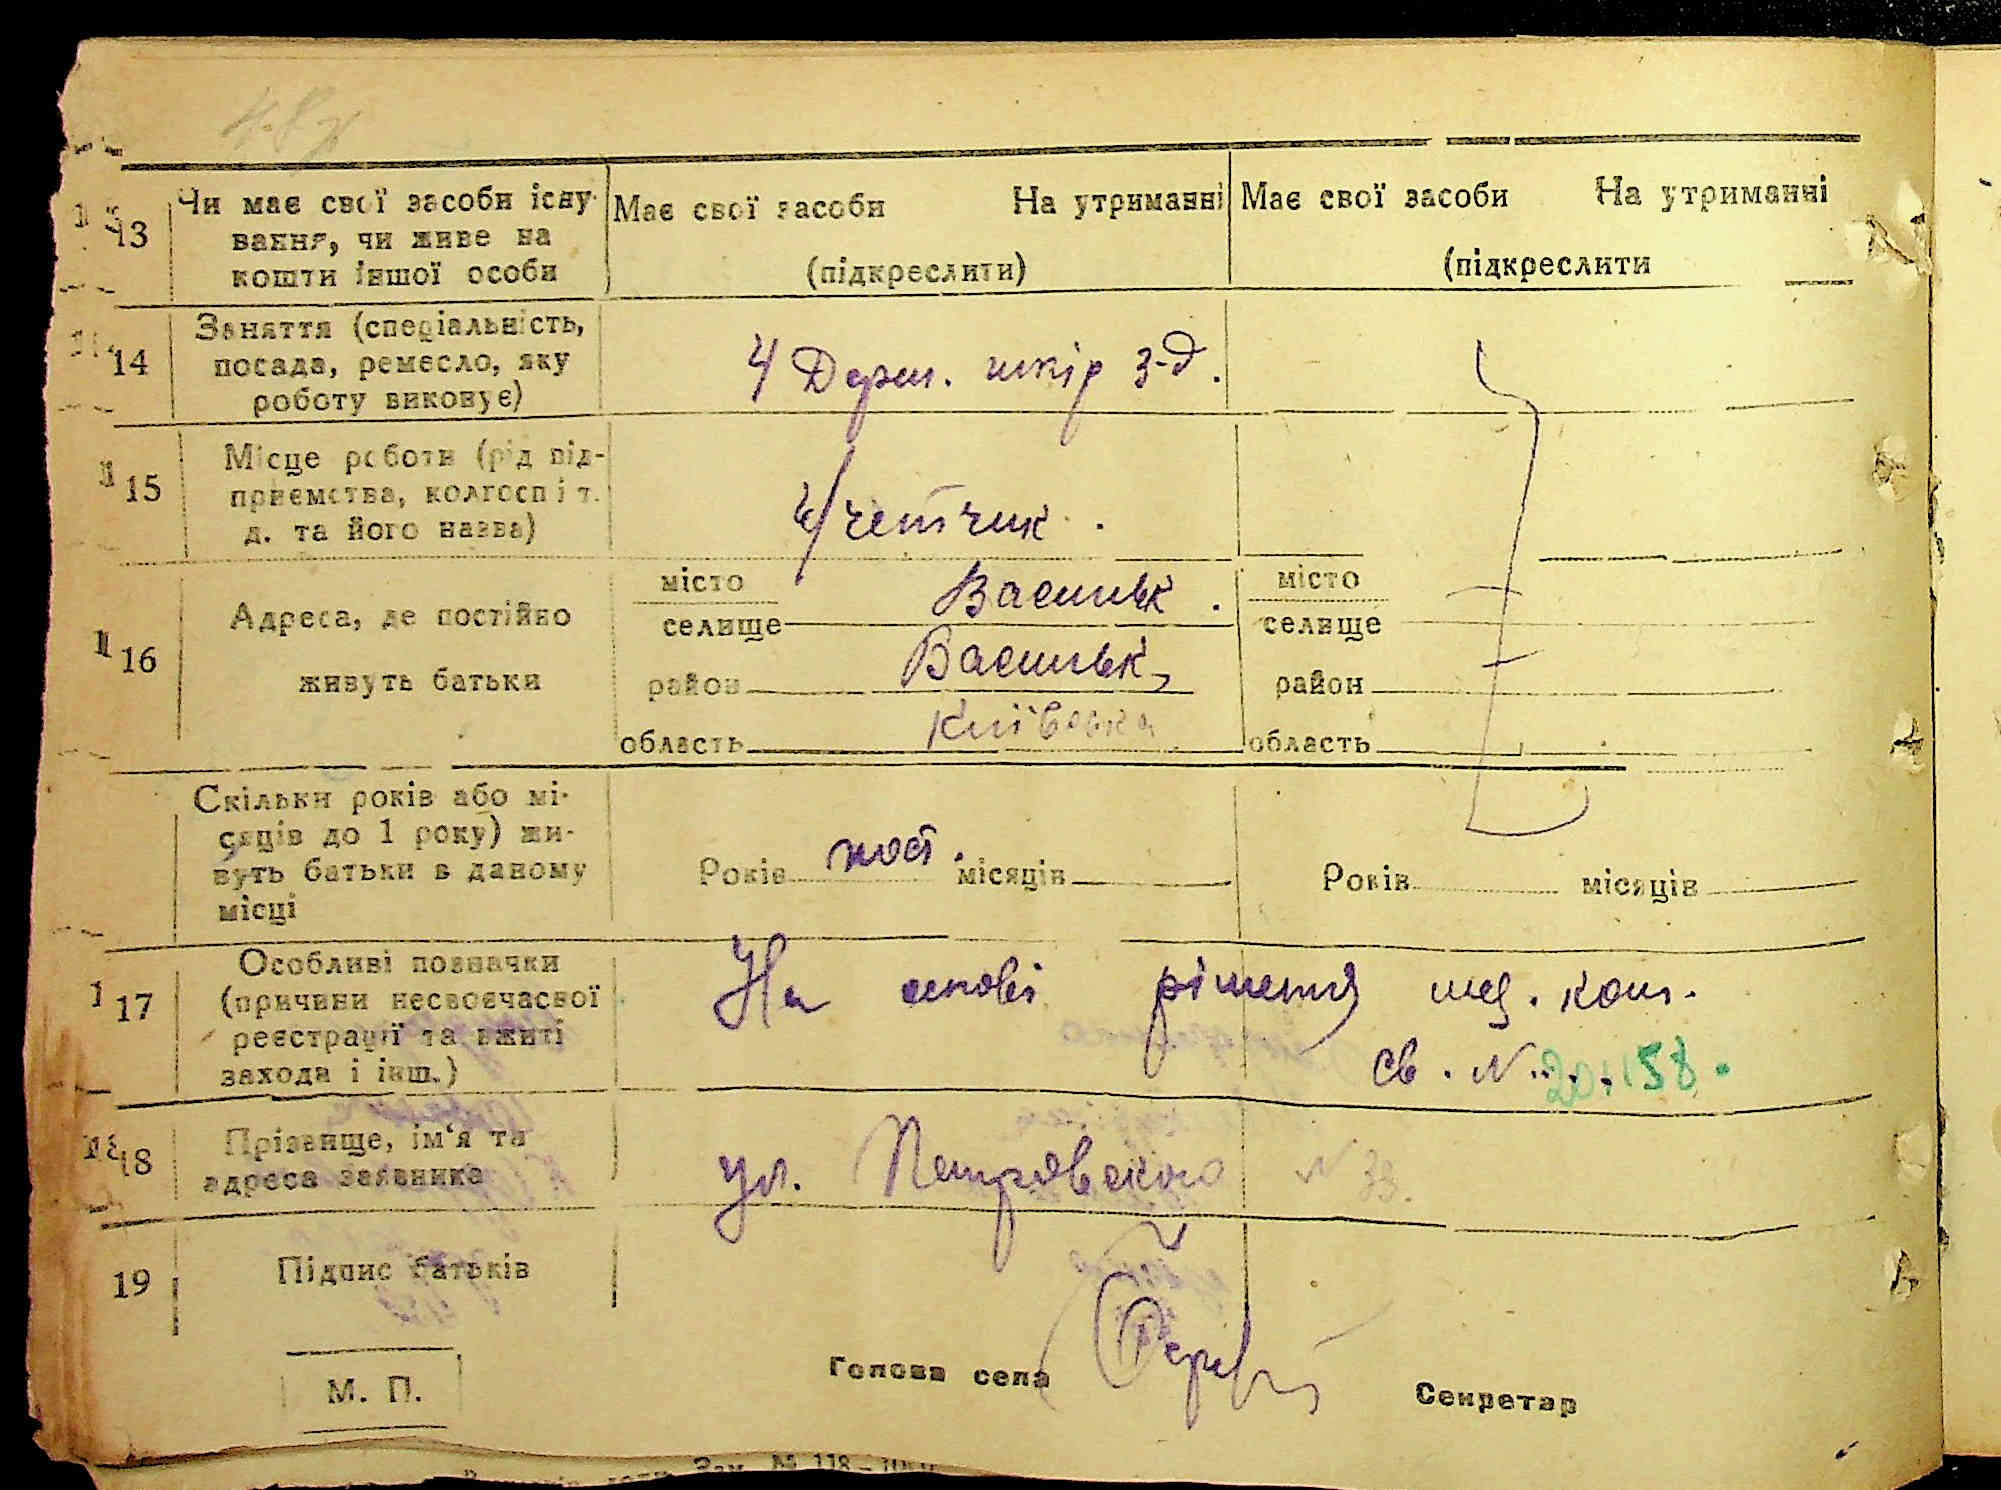 13
Чи має свої засоби існу-
вання, чи живе на
кошти іншої особи
Має свої засоби На утриманні
(підкреслити)
Має свої засоби На утриманні
(підкреслити
14
Заняття (спеціальність,
посада, ремесло, яку
роботу виконує)
4 Держ. шкір з-д.
15
Місце роботи (рід під-
приємства, колгосп і т.
д. та його назва)
Учетчик.
16
Адреса, де постійно
живуть батьки
місто
селище
Васильк.
район Васильк,
область Київська
місто
селище
район
область
Скільки років або мі-
сяців до 1 року) жи-
вуть батьки в даному
місці
Років пост. місяців
Років місяців
17
Особливі позначки
(причини несвоєчасної
реєстрації та вжиті
заходи і інш.)
На основі рішення мед. ком.
св. N 20.158.
18
Прізвище, ім'я та
адреса заявника
ул. Петровского N 33.
19
Підпис батьків
М. П.
Голова села
Секретар
Зам. № 118